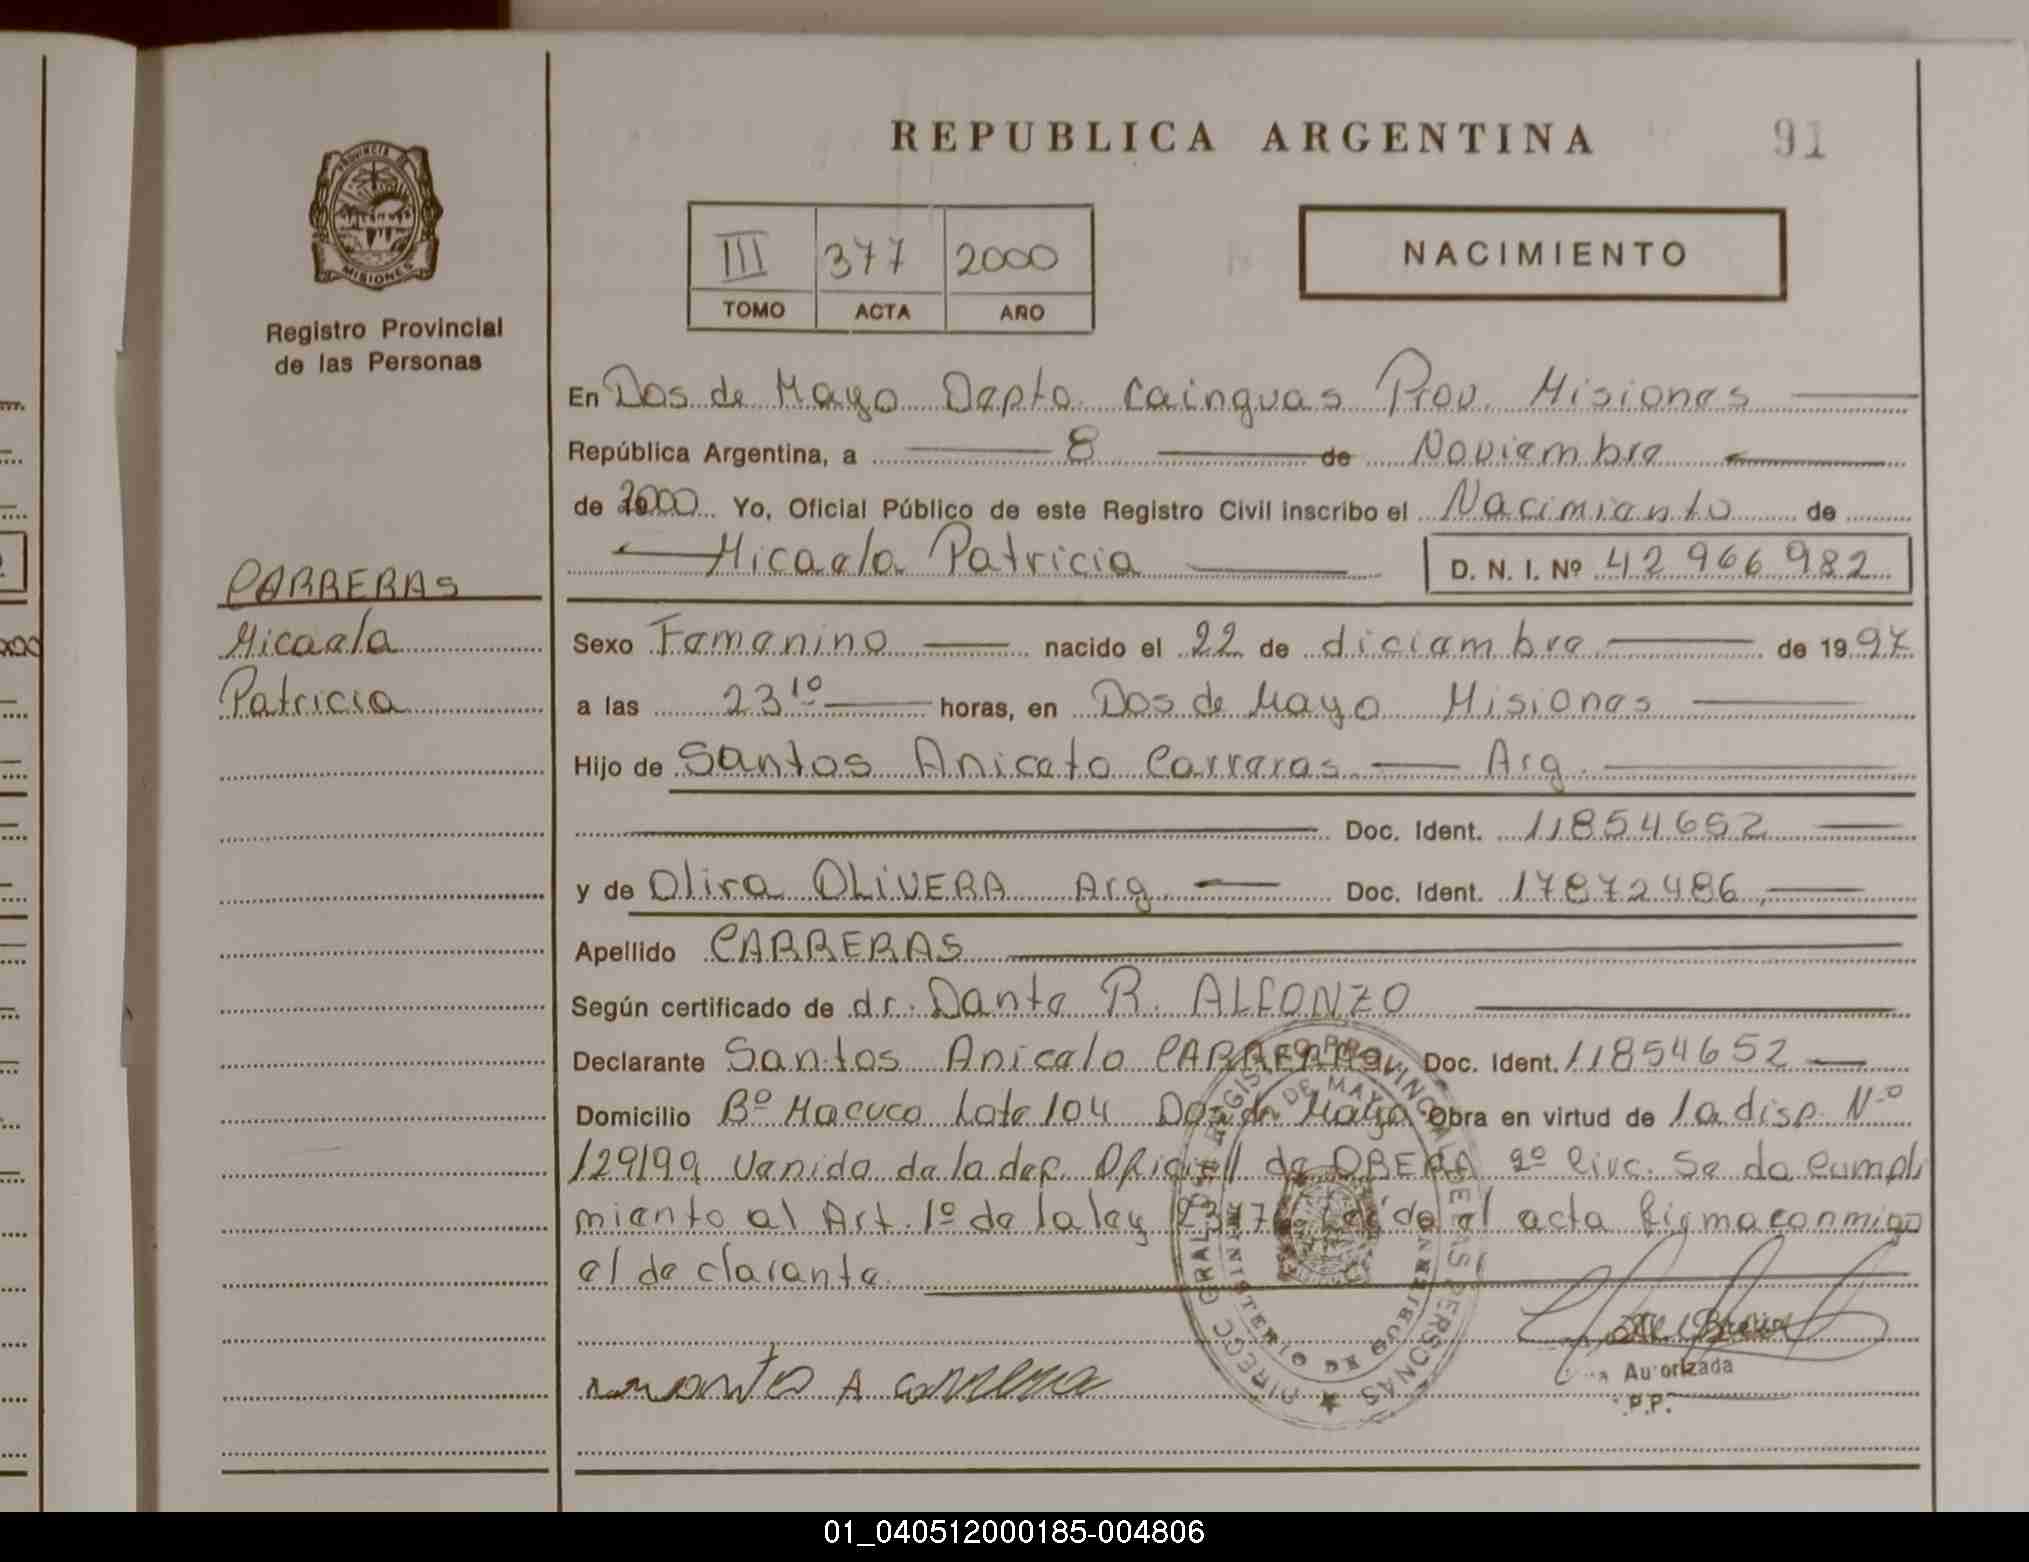 REPUBLICA ARGENTINA
91
PROVINCIA DE
MISIONES
Registro Provincial
de las Personas
III 377 2000
TOMO ACTA AÑO
NACIMIENTO
En Dos de Mayo Depto. Cainguas Prov. Misiones
República Argentina, a 8 de Noviembre
de 2000 Yo, Oficial Público de este Registro Civil inscribo el Nacimiento de
Micaela Patricia
D. N. I. Nº 42966982
CARRERAS
Micaela
Patricia
Sexo Femenino nacido el 22 de diciembre de 1997
a las 23 10 horas, en Dos de Mayo Misiones
Hijo de Santos Aniceto Carreras Arg.
Doc. Ident. 11854652
y de Olira OLIVERA Arg Doc. Ident. 17872486
Apellido CARRERAS
Según certificado de dr. Dante R. ALFONZO
Declarante Santos Aniceto CARRERAS Doc. Ident. 11854652
Domicilio Bº Macuco Lote 104 Dos de Mayo Obra en virtud de la disp. Nº
129199 Venida de la dep. Oficial de OBERA 2º Circ. Se da Cumpli
miento al Art. 1º de la ley Leída el acta firma conmigo
el declarante.
A Carrera
Autorizada
P.P.
DIRECC GRAL DE REGISTRO PROVINCIAL DE LAS PERSONAS
DE MAYO
MINISTERIO DE GOBIERNO
01_040512000185-004806